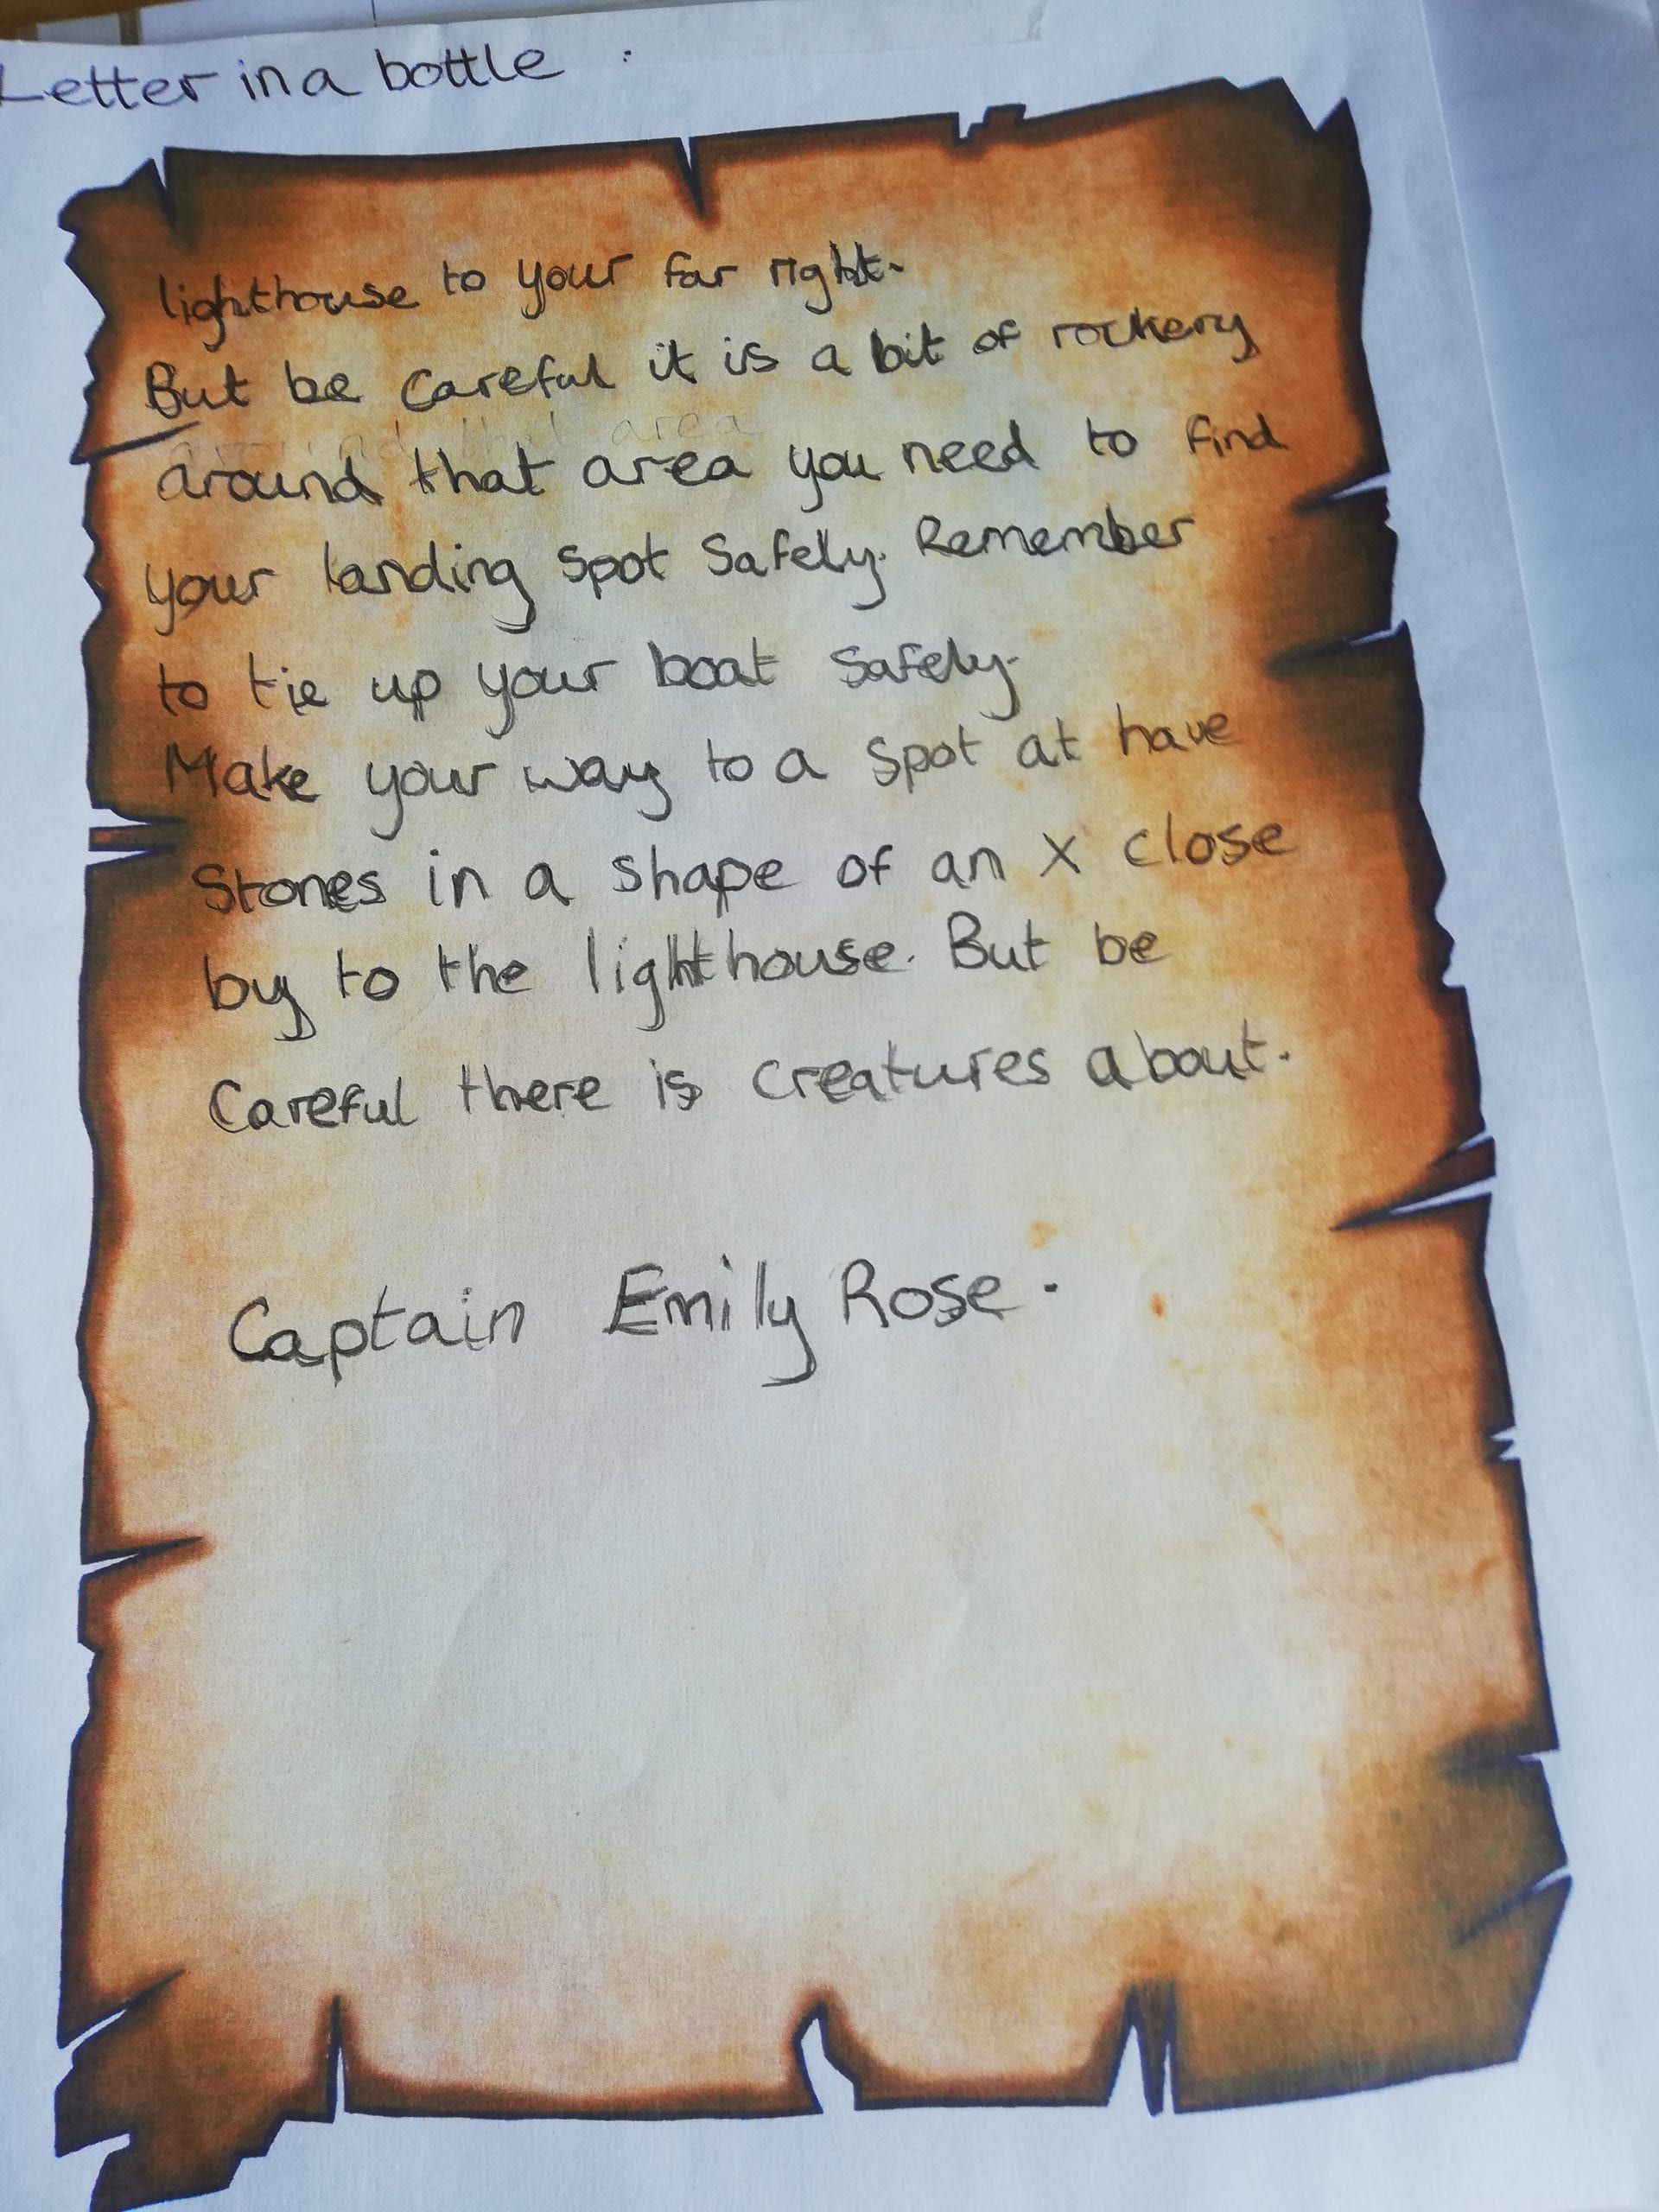 Letter in a bottle :
lighthouse to your far right.
But be careful it is a bit of rockery
around that area
around that area you need to find
your landing spot safely. Remember
to tie up your boat safely.
Make your way to a spot at have
Stones in a shape of an X close
by to the lighthouse. But be
Careful there is creatures about.
Captain Emily Rose.